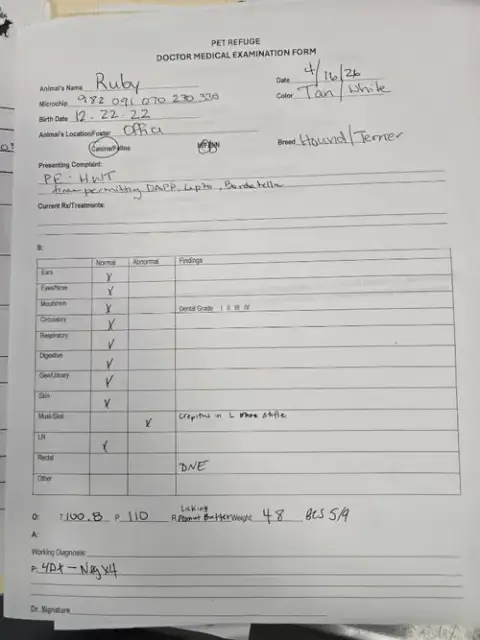 PET REFUGE
DOCTOR MEDICAL EXAMINATION FORM
Animal's Name Ruby Date 4/16/26
Microchip 982 091 070 230 330 Color Tan/White
Birth Date 12.22.22
Animal's Location/Foster Office
Canine/Feline Breed Hound/Terrier
Presenting Complaint:
PE - HWT
time permitting DAPP, Lepto, Bordetella
Current Rx/Treatments:
S:
Normal Abnormal Findings
Ears X
Eyes/Nose X
Mouth X Dental Grade I II III IV
Circulatory X
Respiratory X
Digestive X
Gen/Urinary X
Skin X
Musk/Skel X crepitus in L stifle
LN X
Rectal DNE
Other
O: T: 100.8 P: 110 R: Licking Peanut Butter Weight 48 BCS 5/9
A:
Working Diagnosis:
P: 4Dx - Neg x4
Dr. Signature